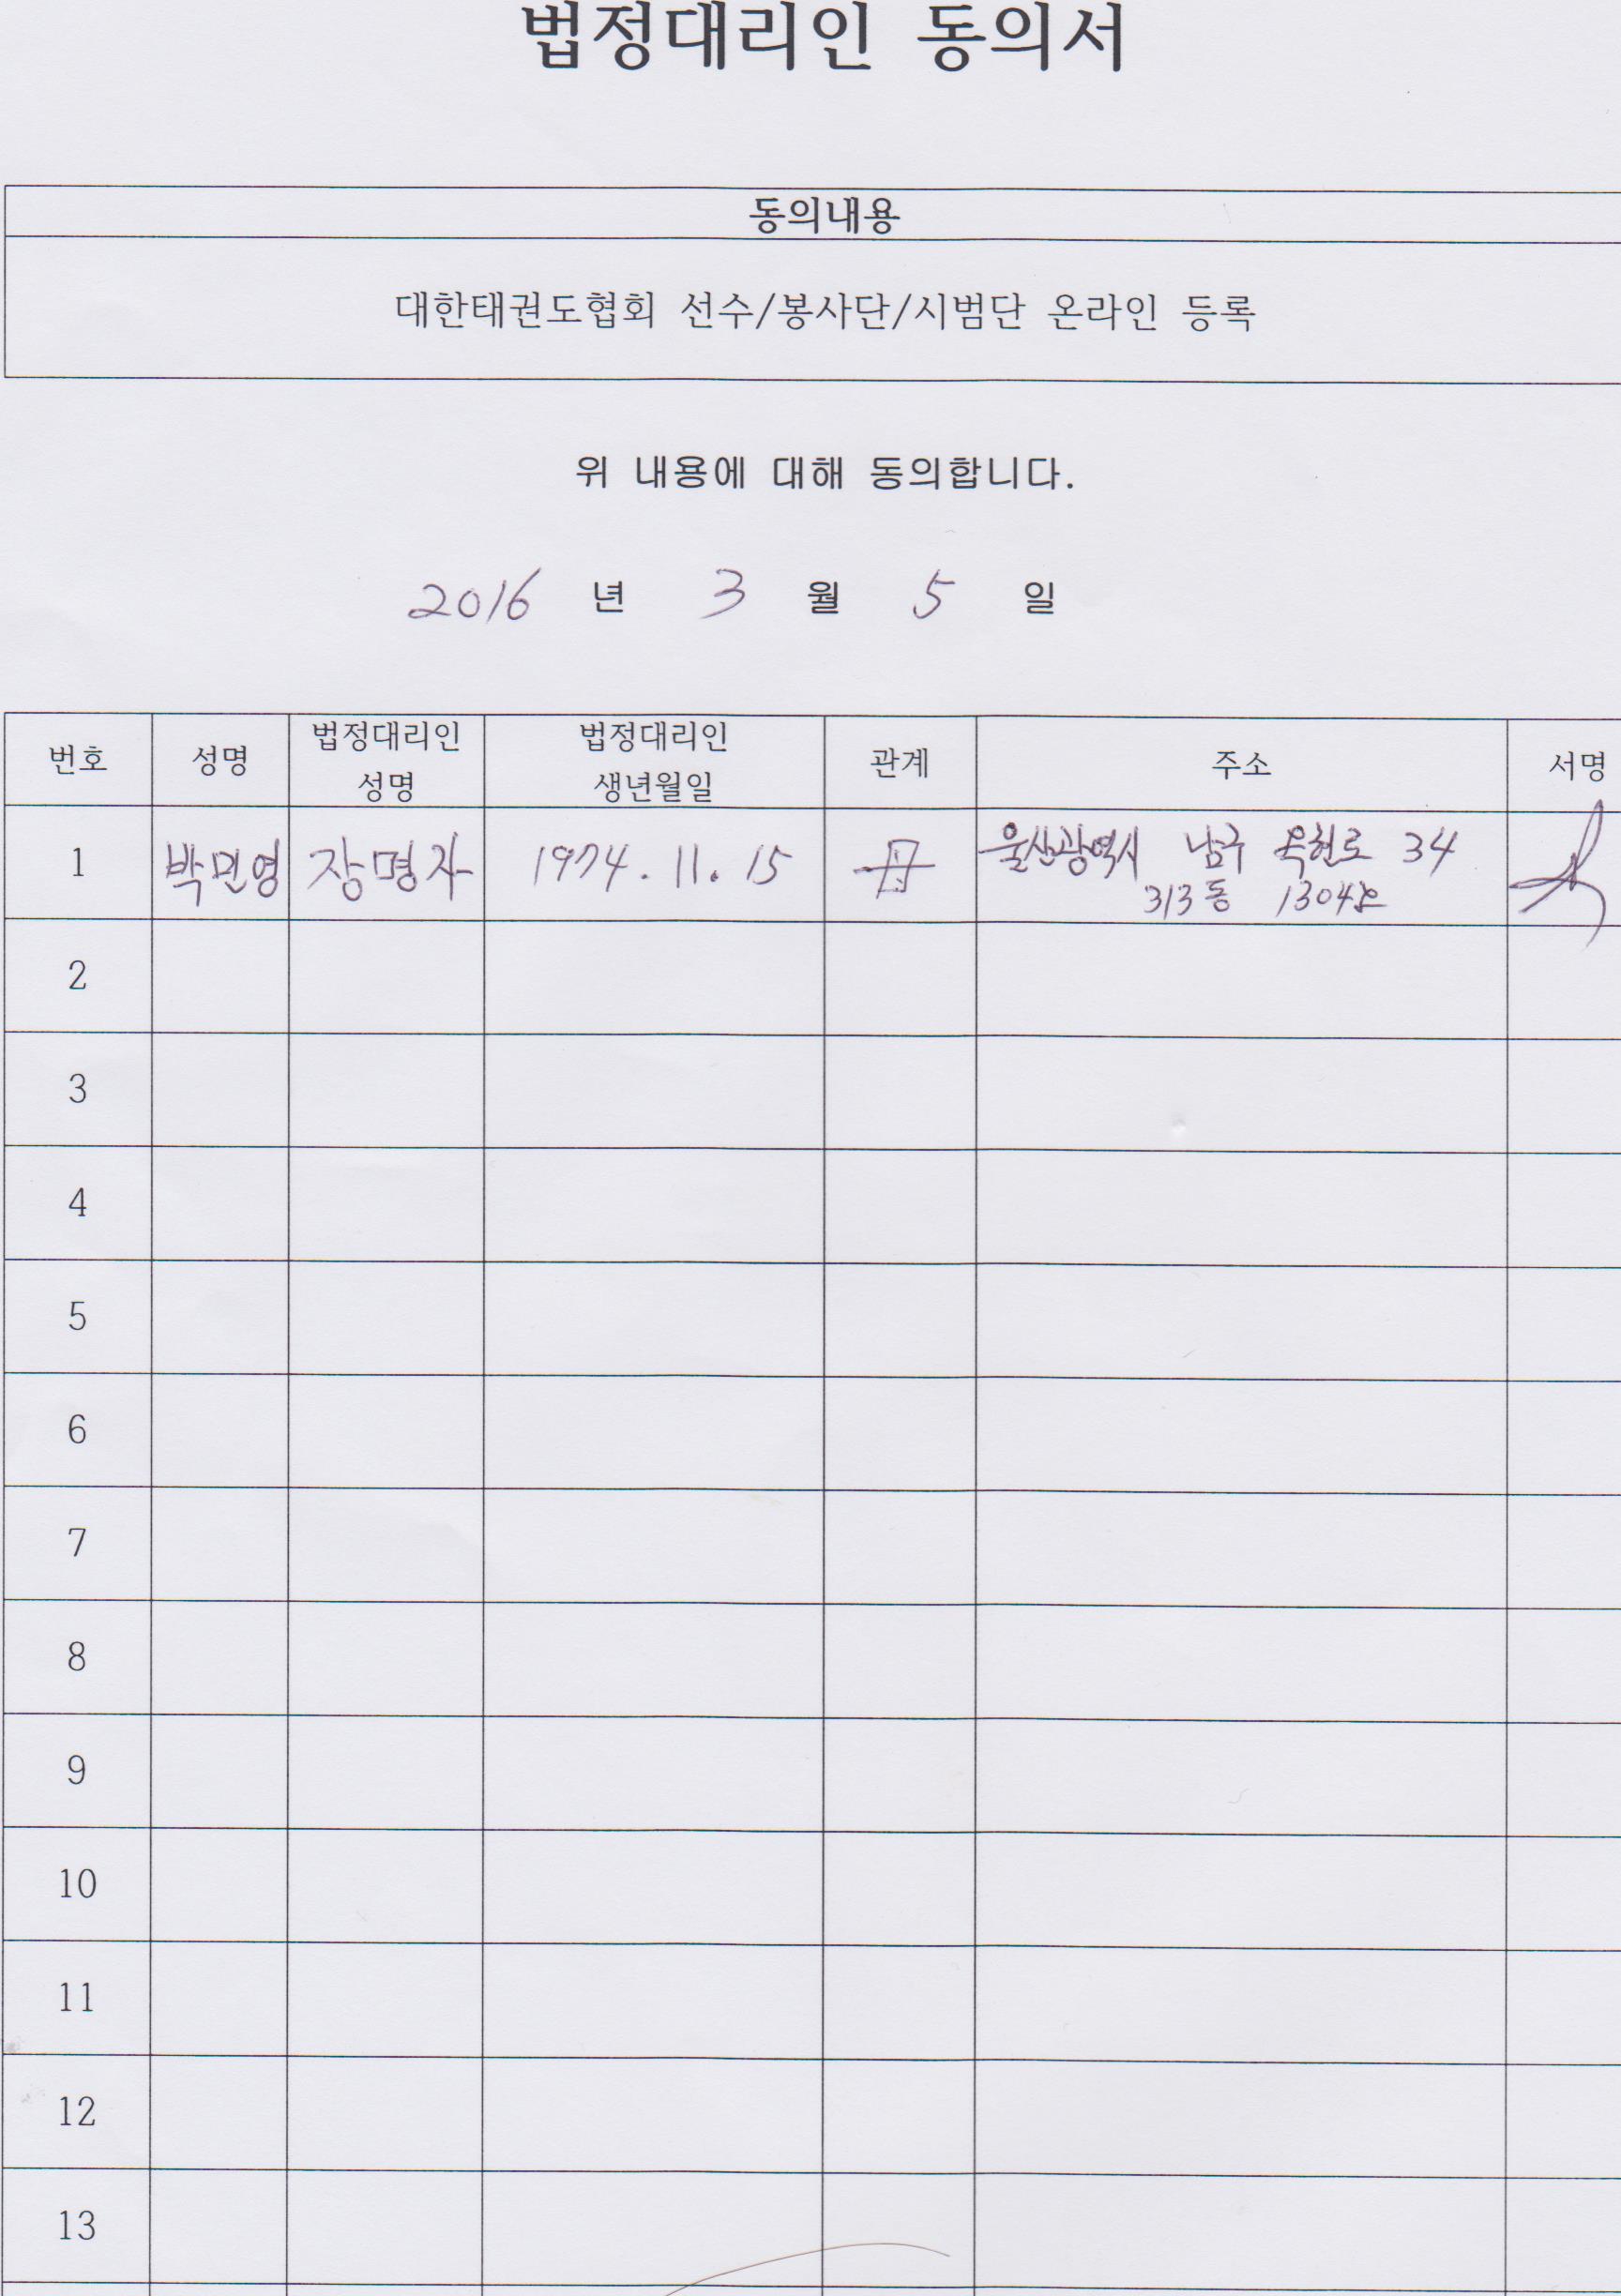 법정대리인 동의서
동의내용
대한태권도협회 선수/봉사단/시범단 온라인 등록
위 내용에 대해 동의합니다.
2016 년 3 월 5 일
번호 성명 법정대리인 성명 법정대리인 생년월일 관계 주소 서명
1 박민영 장명자 1974. 11. 15 母 울산광역시 남구 옥현로 34
313동 1304호
2
3
4
5
6
7
8
9
10
11
12
13